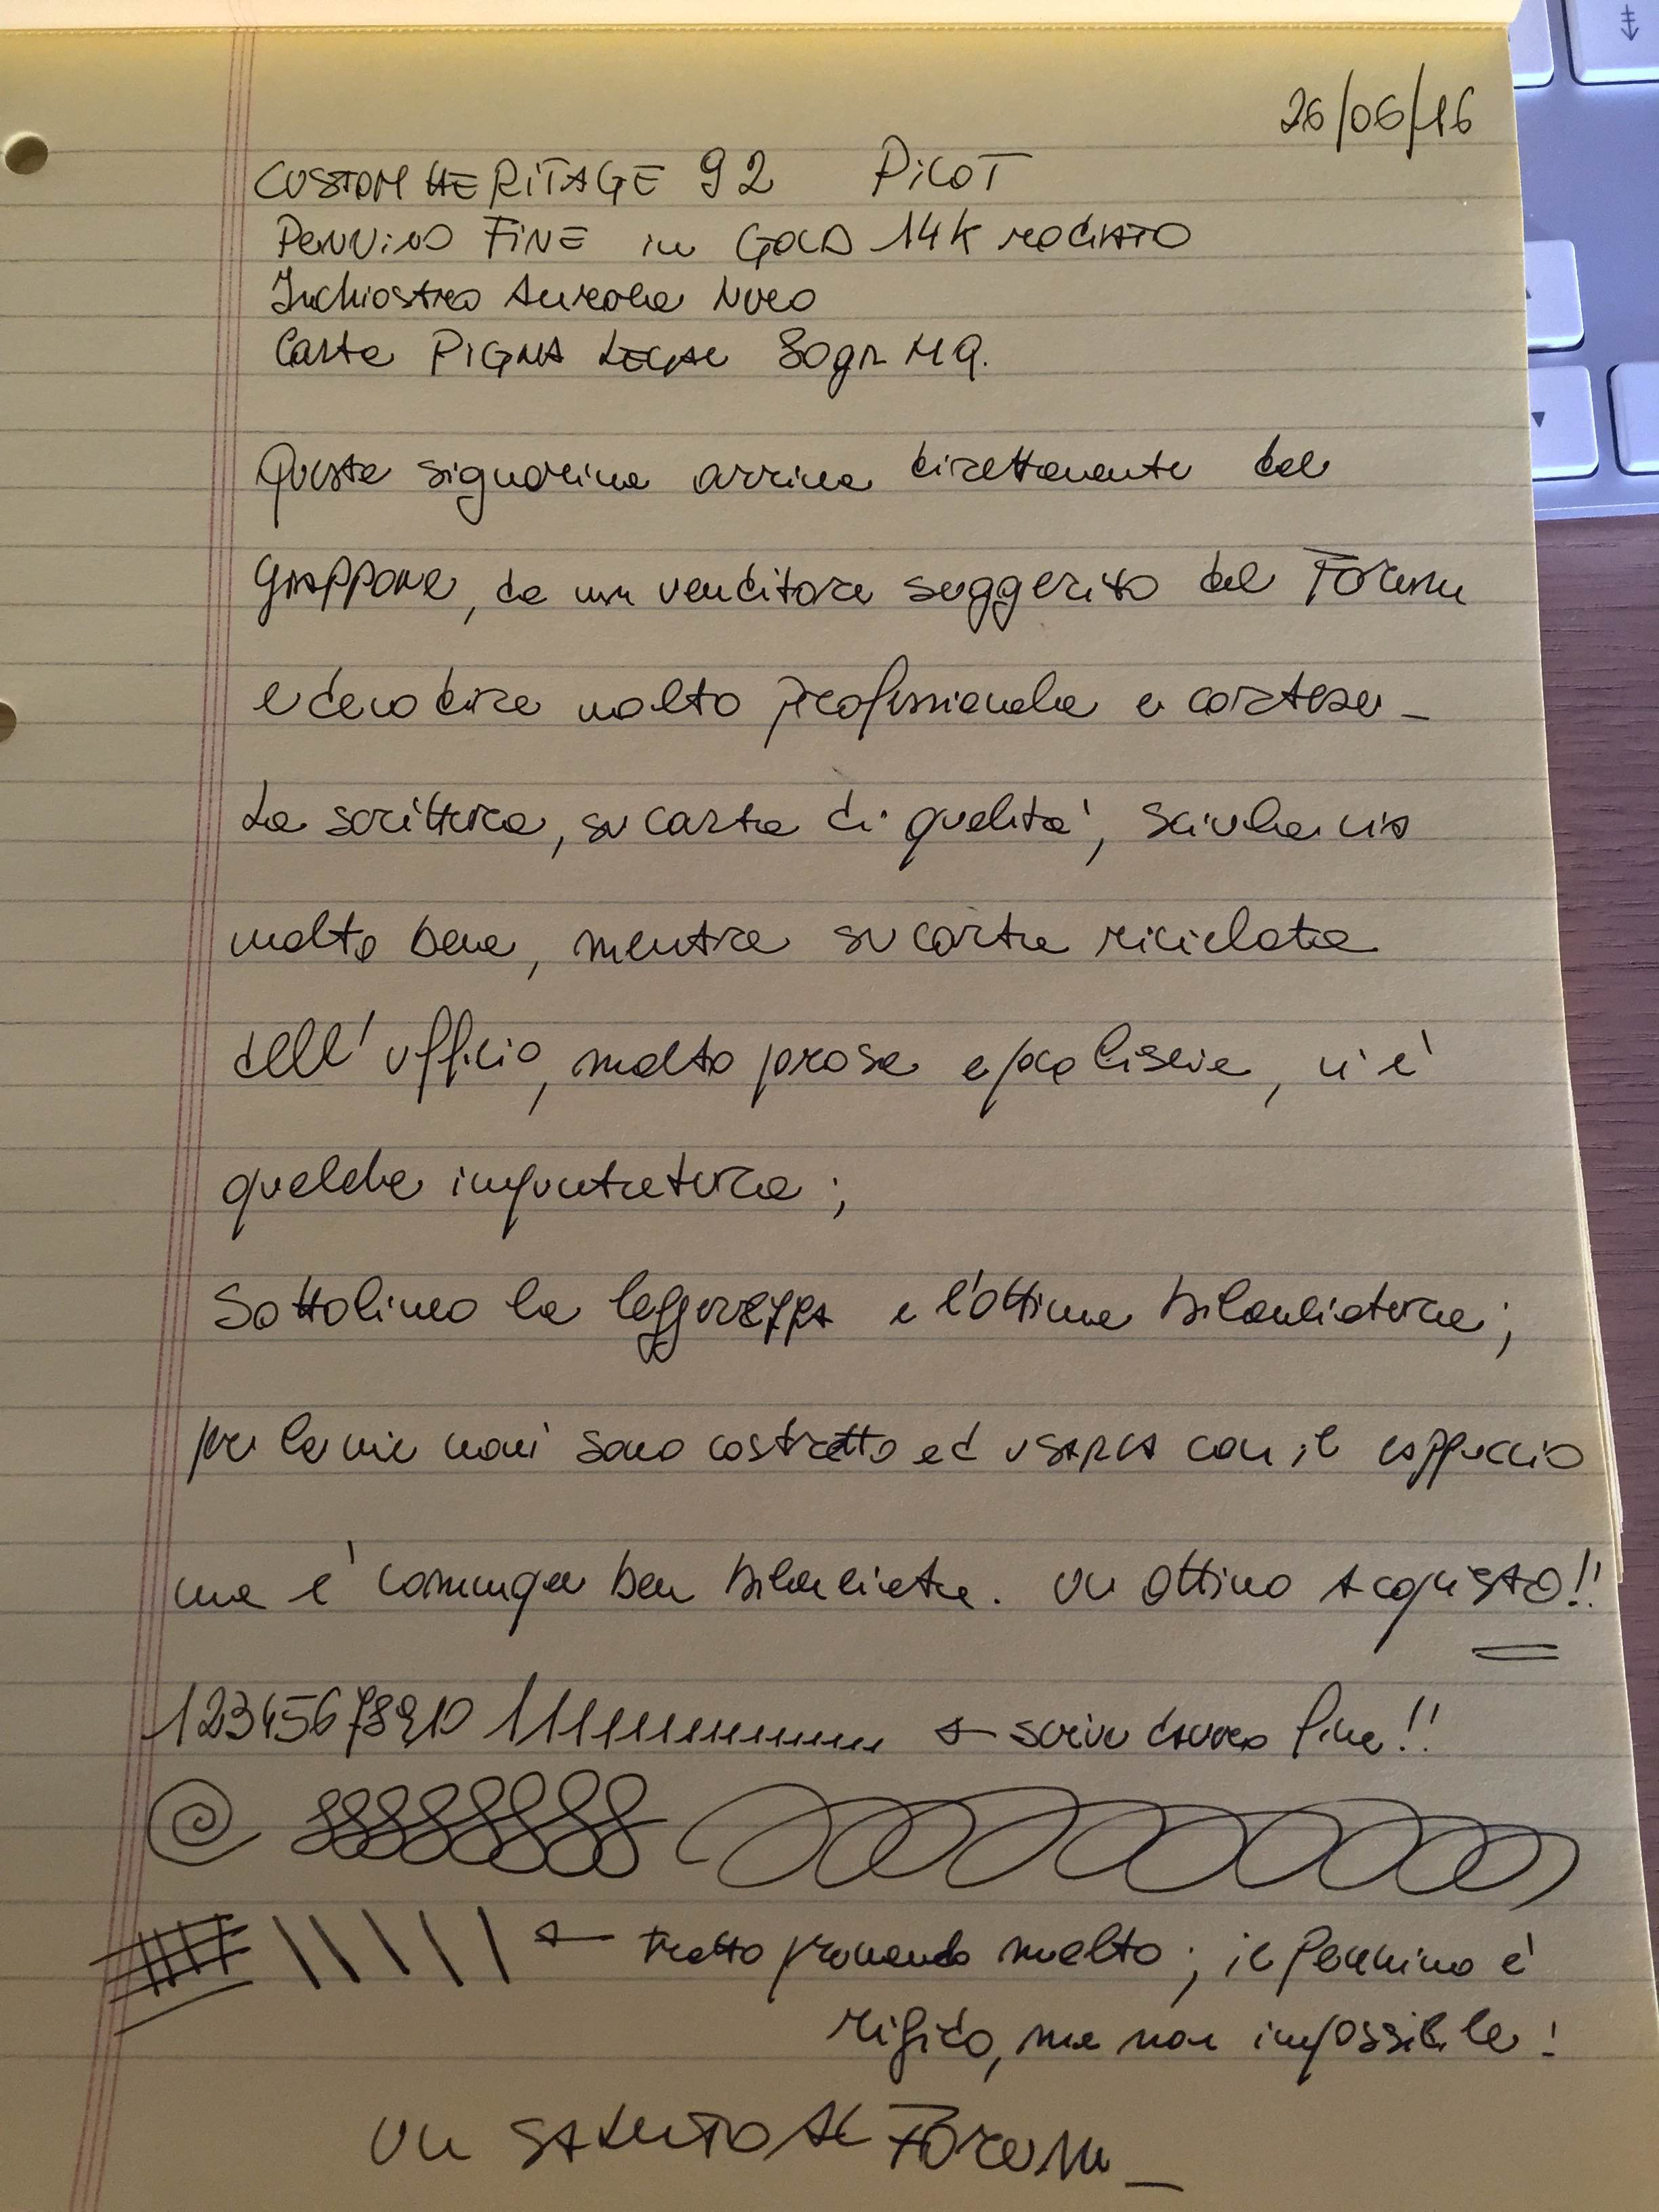 26/06/16
CUSTOM HERITAGE 92 PILOT
PENNINO FINE in GOLD 14K RODIATO
Inchiostro Aurora Nero
Carta PIGNA LEGAL 80gr MQ.
Questa signorina arriva direttamente dal
GIAPPONE, da un venditore suggerito dal FORUM
e devo dire molto professionale e cortese_
La scrittura, su carta di qualità, scivola via
molto bene, mentre su carta riciclata
dell'ufficio, molto porosa e poco liscia, vi è
qualche impuntatura;
Sottolineo la leggerezza e l'ottima bilanciatura;
per le mie mani sono costretto ad USARLA con il cappuccio
ma è comunque ben bilanciata. Un ottimo acquisto!!
12345678910 1111111111111111 ← scrive davvero fine!!
← tratto premendo molto; il pennino è
rigido, ma non impossibile!
UN SALUTO AL FORUM_